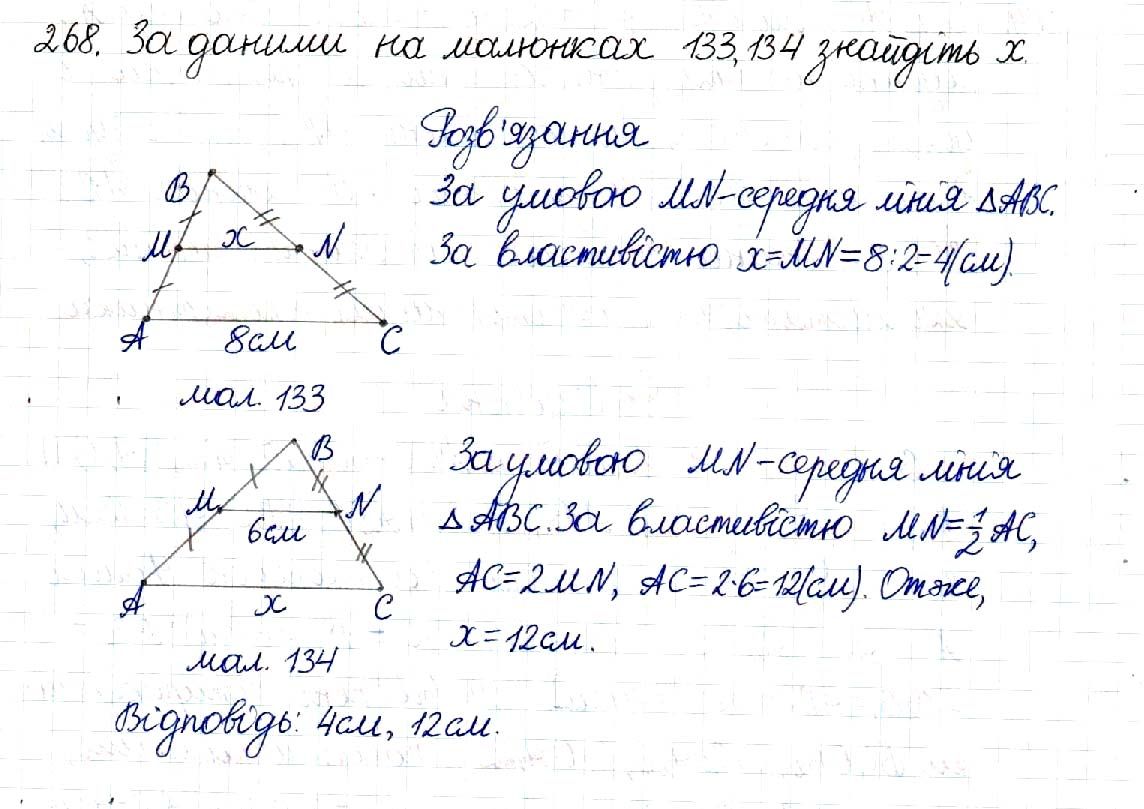 268. За даними на малюнках 133, 134 знайдіть x.
Розв'язання
B
M
x
N
A
8см
C
мал. 133
За умовою MN-середня лінія △ABC.
За властивістю x=MN=8:2=4(см).
B
M
N
6см
A
x
C
мал. 134
За умовою MN-середня лінія
△ABC. За властивістю MN=1/2 AC,
AC=2MN, AC=2·6=12(см). Отже,
x=12см.
Відповідь: 4см, 12см.